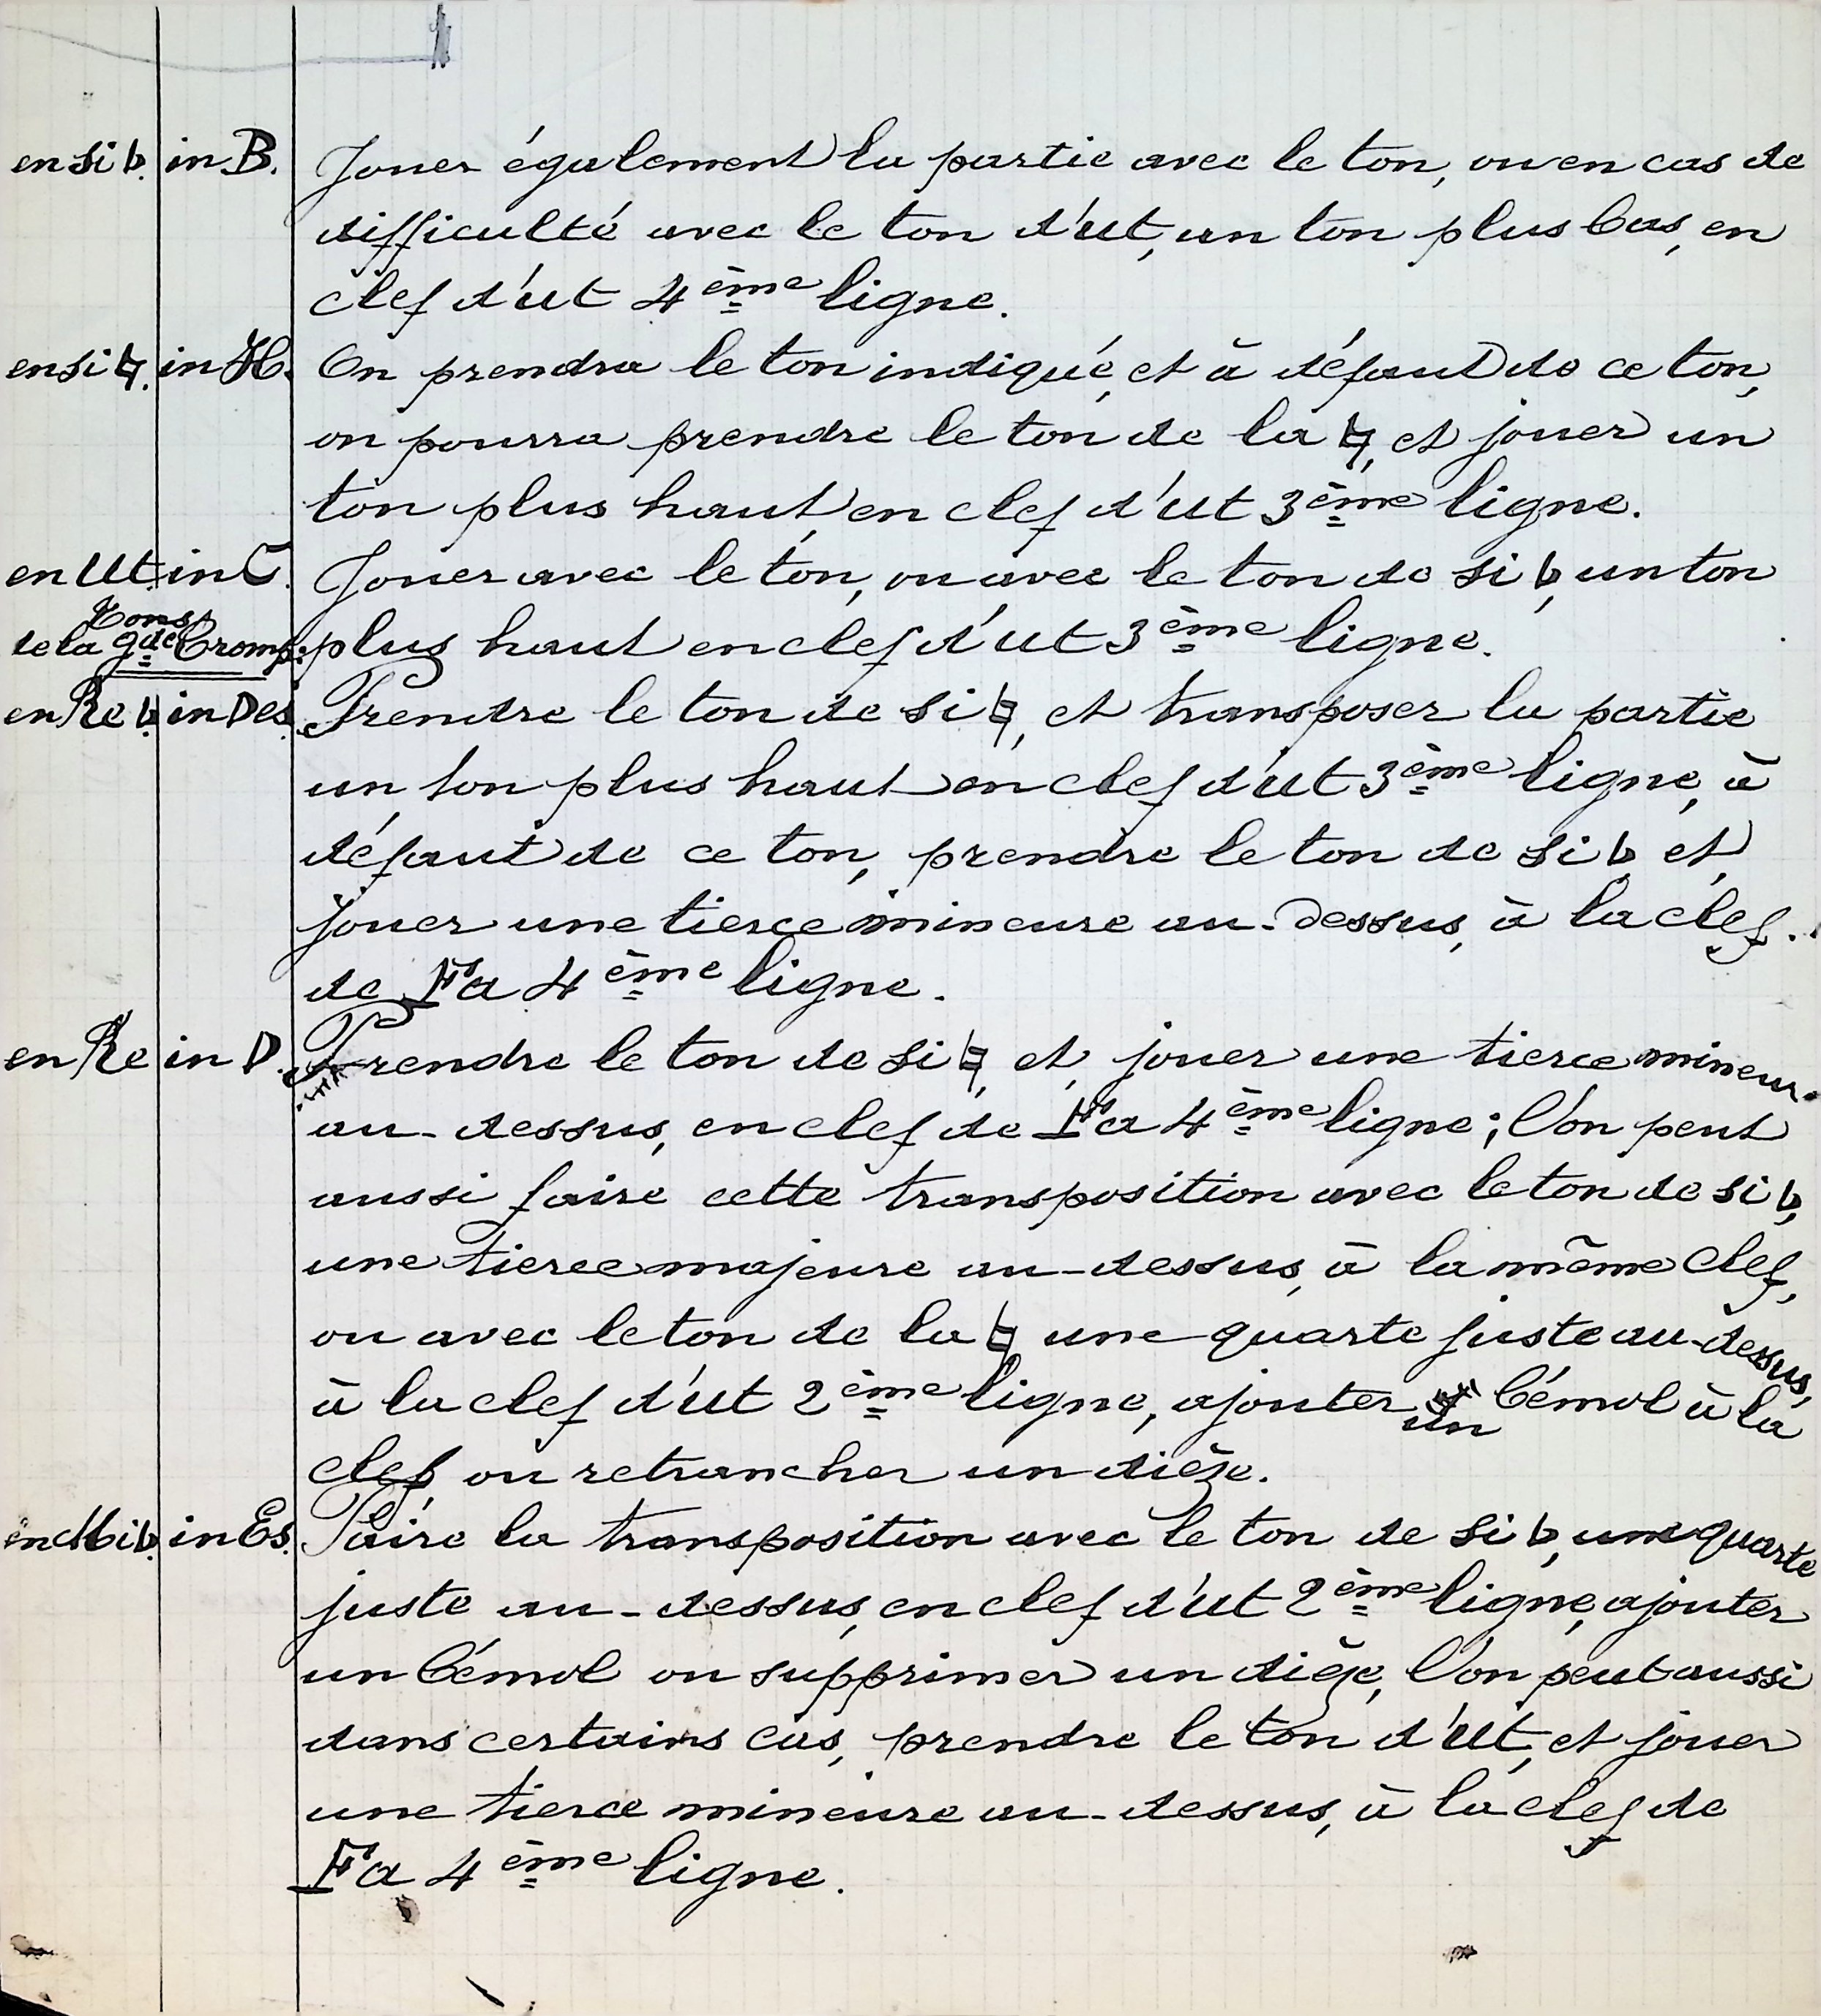 en si ♭. in B. Jouer également la partie avec le ton, ou en cas de
difficulté avec le ton d'ut, un ton plus bas, en
clef d'ut 4ème ligne.
en si ♮. in H. On prendra le ton indiqué, et à défaut de ce ton,
on pourra prendre le ton de la ♮, et jouer un
ton plus haut, en clef d'ut 3ème ligne.
en Ut. in C. Jouer avec le ton, ou avec le ton de si ♭, un ton
Tons
de la gde Tromp: plus haut en clef d'ut 3ème ligne.
en Re ♭. in Des. Prendre le ton de si ♮, et transposer la partie
un ton plus haut en clef d'ut 3ème ligne, à
défaut de ce ton, prendre le ton de si ♭, et
jouer une tierce mineure au-dessus, à la clef.
de Fa 4ème ligne.
en Re in D. Prendre le ton de si ♮, et jouer une tierce mineur.
au-dessus, en clef de Fa 4ème ligne; l'on peut
aussi faire cette transposition avec le ton de si ♭,
une tierce majeure au-dessus, à la même clef,
ou avec le ton de la ♮ une quarte juste au-dessus,
à la clef d'ut 2ème ligne, ajouter un bémol à la
clef, ou retrancher un dièze.
en Mi ♭. in Es. Faire la transposition avec le ton de si ♭, une quarte
juste au-dessus, en clef d'ut 2ème ligne, ajouter
un bémol ou supprimer un dièze, l'on peut aussi
dans certains cas, prendre le ton d'ut, et jouer
une tierce mineure au-dessus, à la clef de
Fa 4ème ligne.